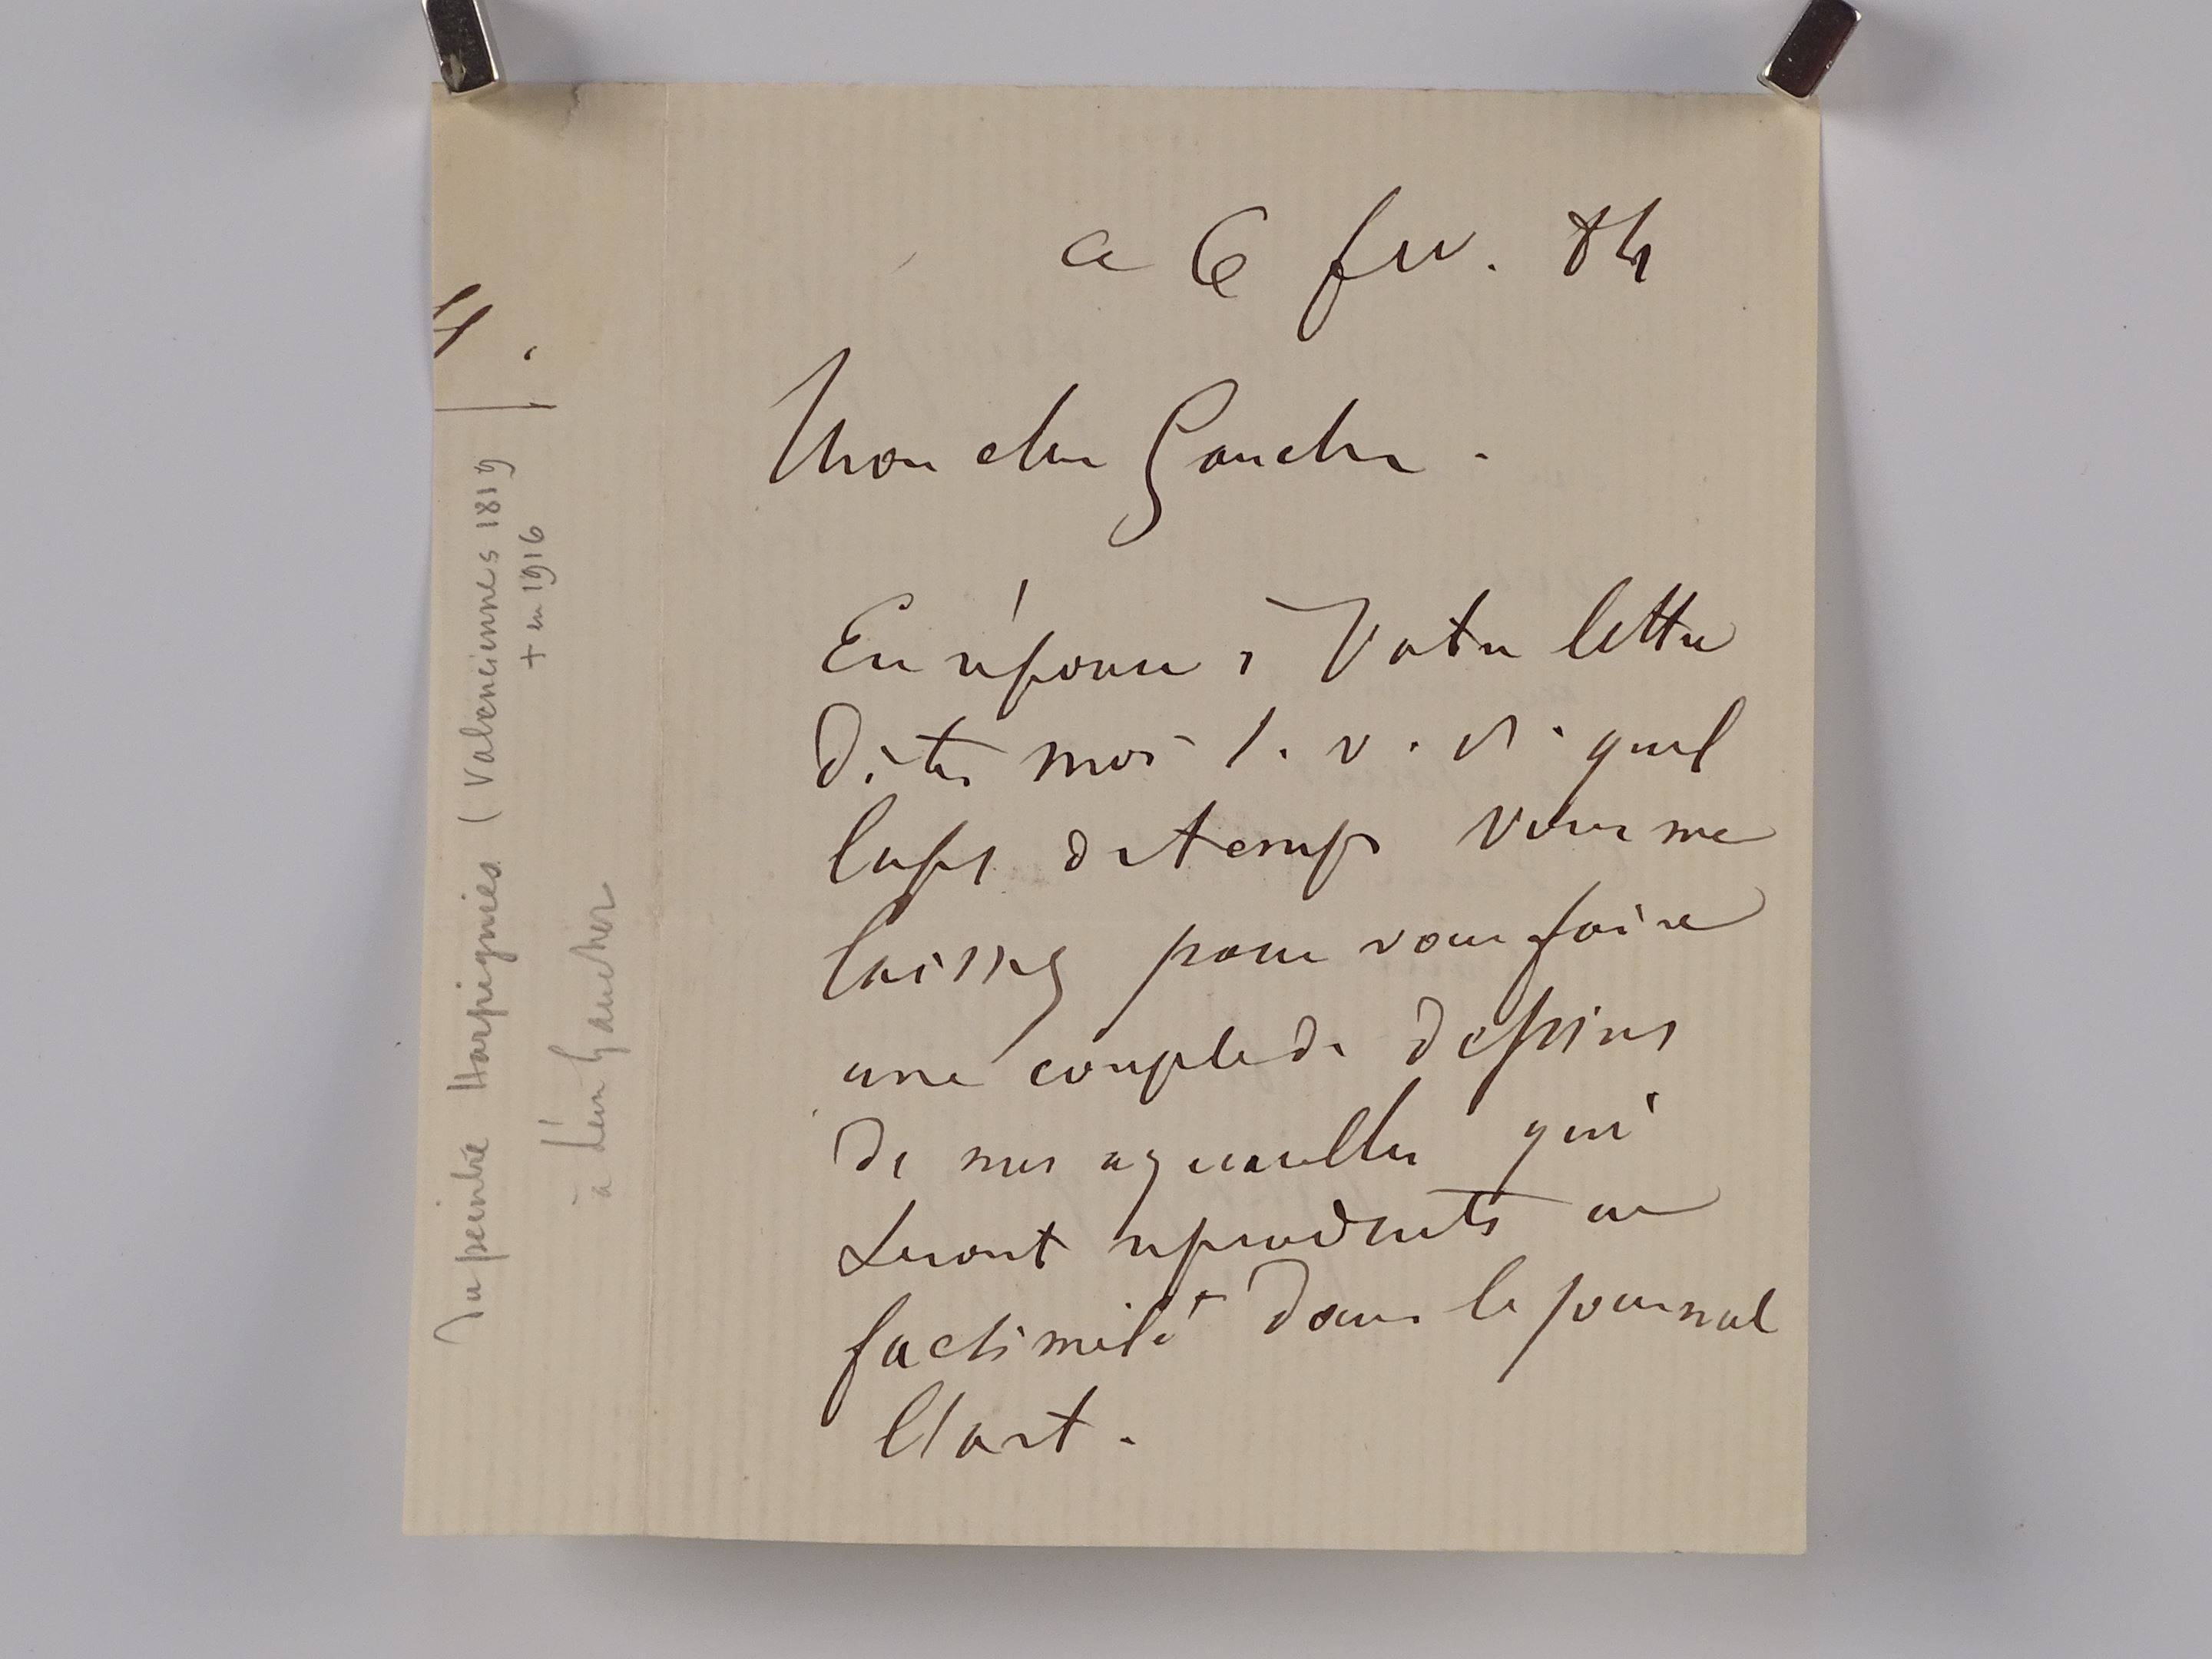 ce 6 fev. 84
Mon cher Gaucher.
En réponse à Votre lettre
dites moi s. v. p. quel
laps de temps vous me
laissez pour vous faire
une couple de dessins
de mes aquarelles qui
seront reproduits en
facsimilé dans le journal
l'art.
Du peintre Harpignies (Valenciennes 1819
+ en 1916
à Léon Gaucher